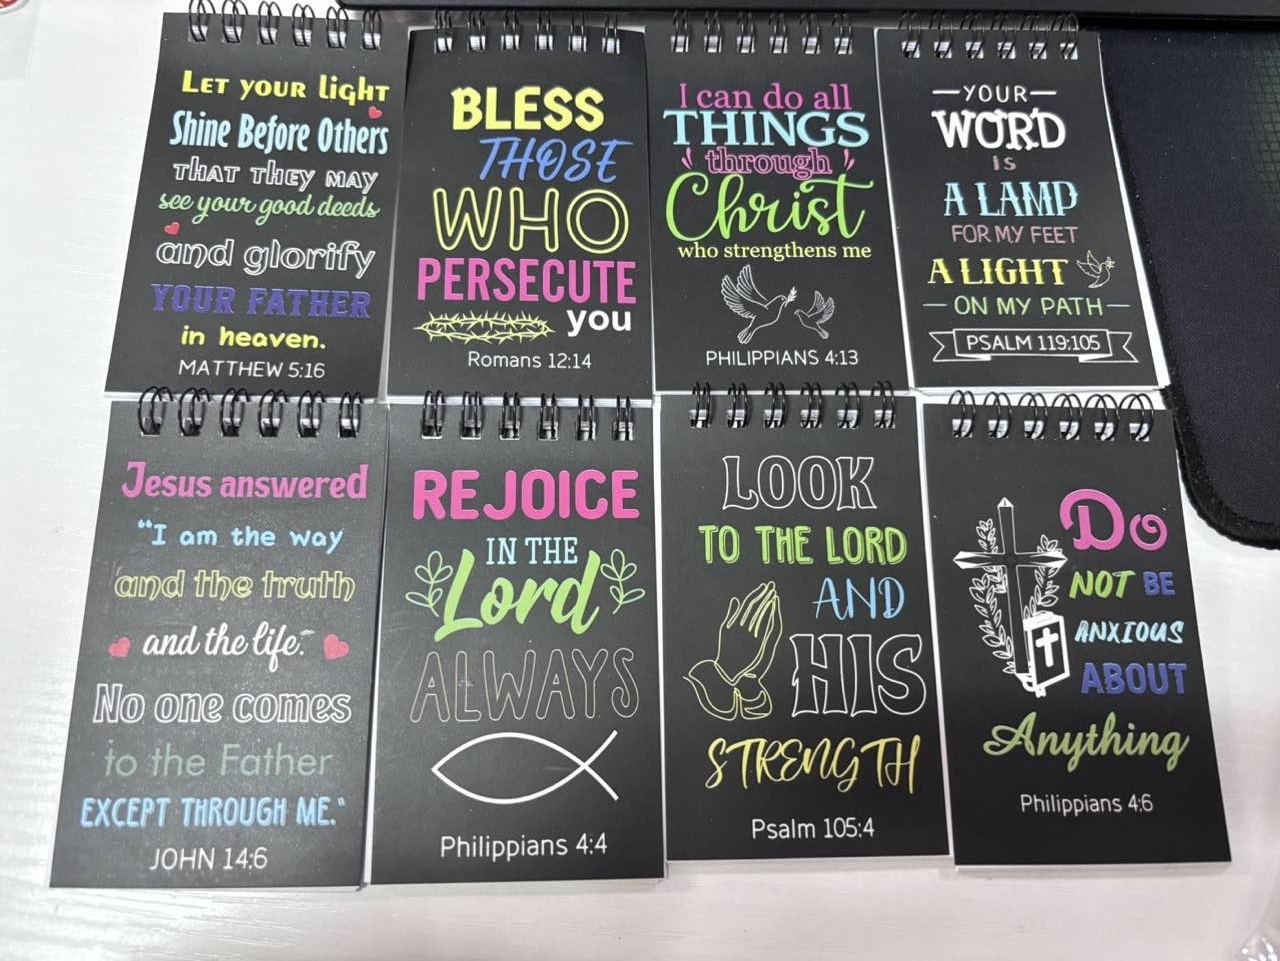 Let your light
Shine Before Others
that they may
see your good deeds
and glorify
YOUR FATHER
in heaven.
MATTHEW 5:16
BLESS
THOSE
WHO
PERSECUTE
you
Romans 12:14
I can do all
THINGS
through
Christ
who strengthens me
PHILIPPIANS 4:13
YOUR
WORD
IS
A LAMP
FOR MY FEET
A LIGHT
ON MY PATH
PSALM 119:105
Jesus answered
"I am the way
and the truth
and the life."
No one comes
to the Father
EXCEPT THROUGH ME."
JOHN 14:6
REJOICE
IN THE
Lord
ALWAYS
Philippians 4:4
LOOK
TO THE LORD
AND
HIS
STRENGTH
Psalm 105:4
Do
NOT BE
ANXIOUS
ABOUT
Anything
Philippians 4:6